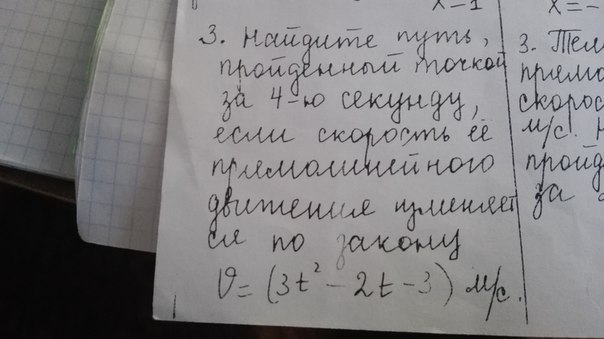 x-1
x=-
3. Найдите путь,
пройденный точкой
за 4-ю секунду,
если скорость её
прямолинейного
движения изменяет
ся по закону
V=(3t²-2t-3) м/с.
3. Тем
прямо
скорос
м/с.
пройд
за